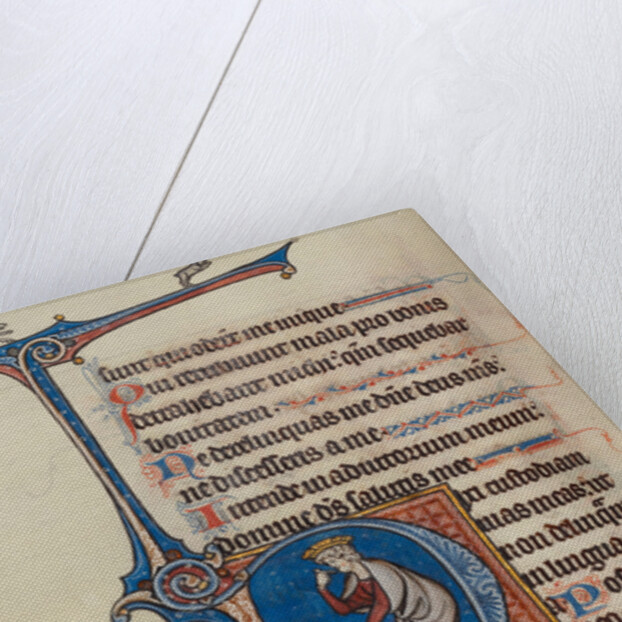 sunt qui oder̄t me inique
Qui retribuunt mala pro bonis
detrahebant michi: qm̄ sequebar
bonitatem.
Ne derelinquas me dn̄e deus m̄s:
ne discesseris a me
Intende in adiutorium meum:
domine ds̄ salutis mee
in custodiam
uias meas: ut
non delinq
in lingua
Po